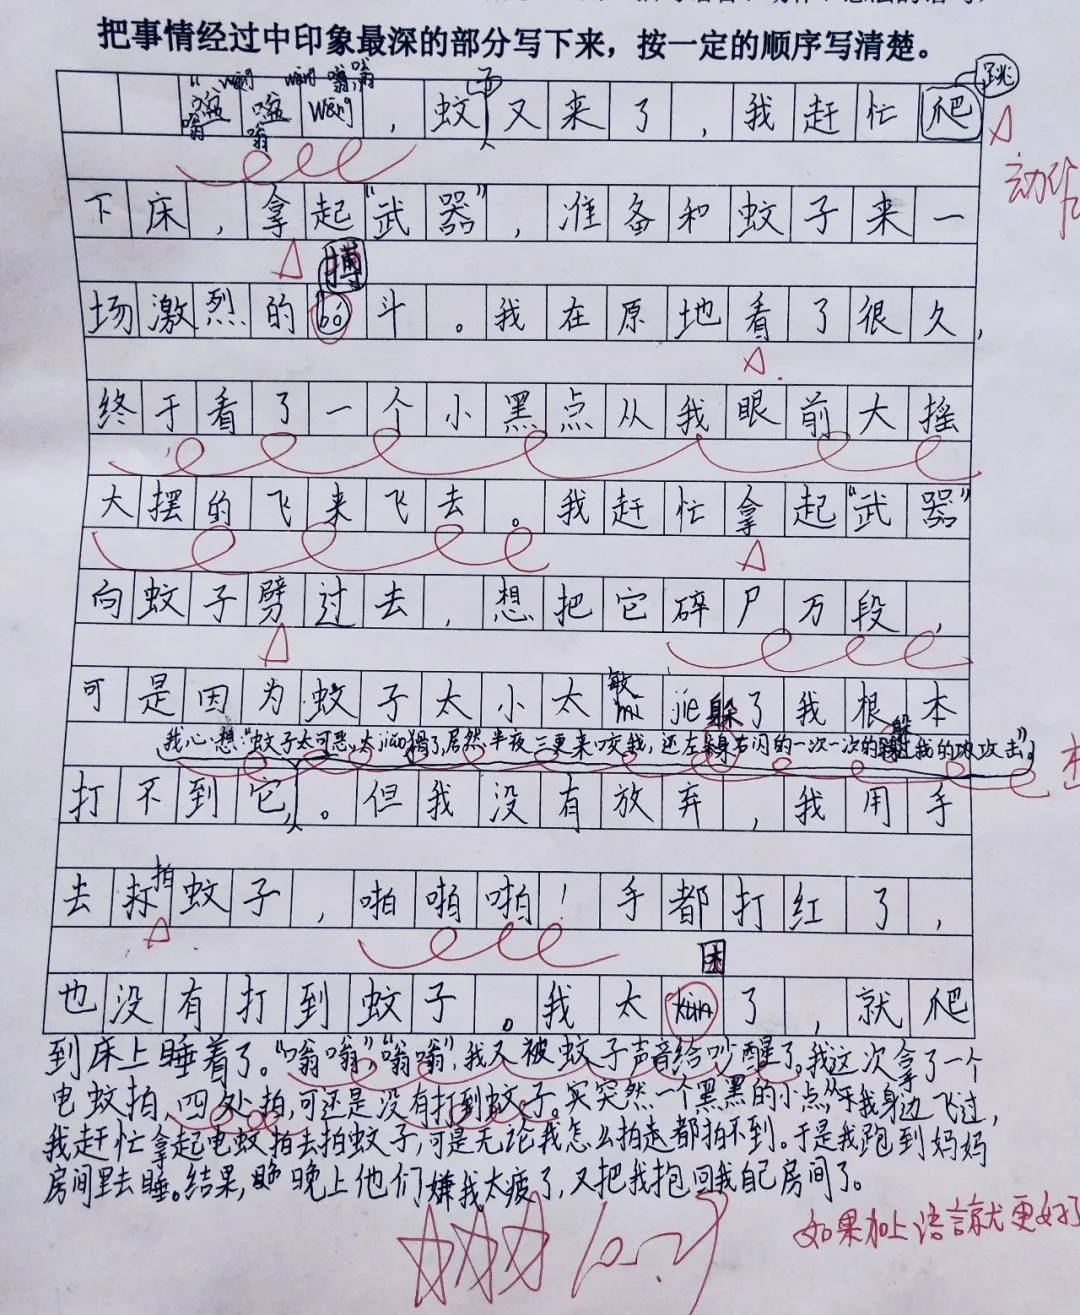 把事情经过中印象最深的部分写下来，按一定的顺序写清楚。
wēng wēng 嗡嗡 子 跳
wēng，蚊又来了，我赶忙爬
嗡 嗡
动作
下床，拿起“武器”，准备和蚊子来一
搏
场激烈的bó斗。我在原地看了很久，
终于看了一个小黑点从我眼前大摇
大摆的飞来飞去。我赶忙拿起“武器”
向蚊子劈过去，想把它碎尸万段，
敏
可是因为蚊子太小太mijie躲了我根本
我心想：“蚊子太可恶，太jiǎo猾了，居然半夜三更来咬我，还左躲右闪的一次一次的躲过我的攻击”。
打不到它，。但我没有放弃，我用手
拍
去打蚊子，啪啪啪！手都打红了，
困
也没有打到蚊子。我太kùn了，就爬
到床上睡着了。“嗡嗡”“嗡嗡”，我又被蚊子声音给吵醒了。我这次拿了一个
电蚊拍，四处拍，可还是没有打到蚊子。突然一个黑黑的小点从我身边飞过，
我赶忙拿起电蚊拍去拍蚊子，可是无论我怎么拍走都拍不到。于是我跑到妈妈
房间里去睡。结果，晚上他们嫌我太疲了，又把我抱回我自己房间了。
如果加上语言就更好了
10.27